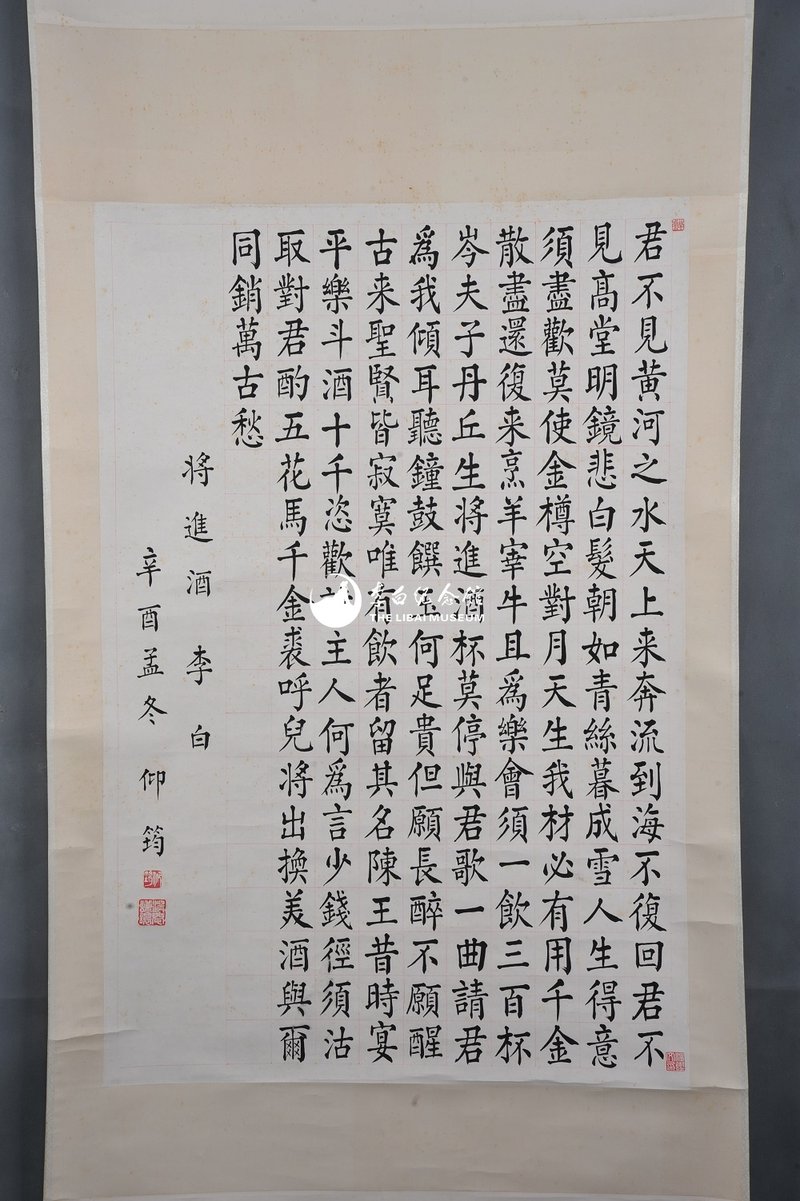 君不見黄河之水天上来奔流到海不復回君不
見高堂明鏡悲白髮朝如青絲暮成雪人生得意
須盡歡莫使金樽空對月天生我材必有用千金
散盡還復来烹羊宰牛且爲樂會須一飲三百杯
岑夫子丹丘生將進酒杯莫停與君歌一曲請君
爲我傾耳聽鐘鼓饌玉何足貴但願長醉不願醒
古来聖賢皆寂寞唯有飲者留其名陳王昔時宴
平樂斗酒十千恣歡謔主人何爲言少錢徑須沽
取對君酌五花馬千金裘呼兒將出換美酒與爾
同銷萬古愁
將進酒 李白
辛酉孟冬 仰筠
李白纪念馆
THE LIBAI MUSEUM